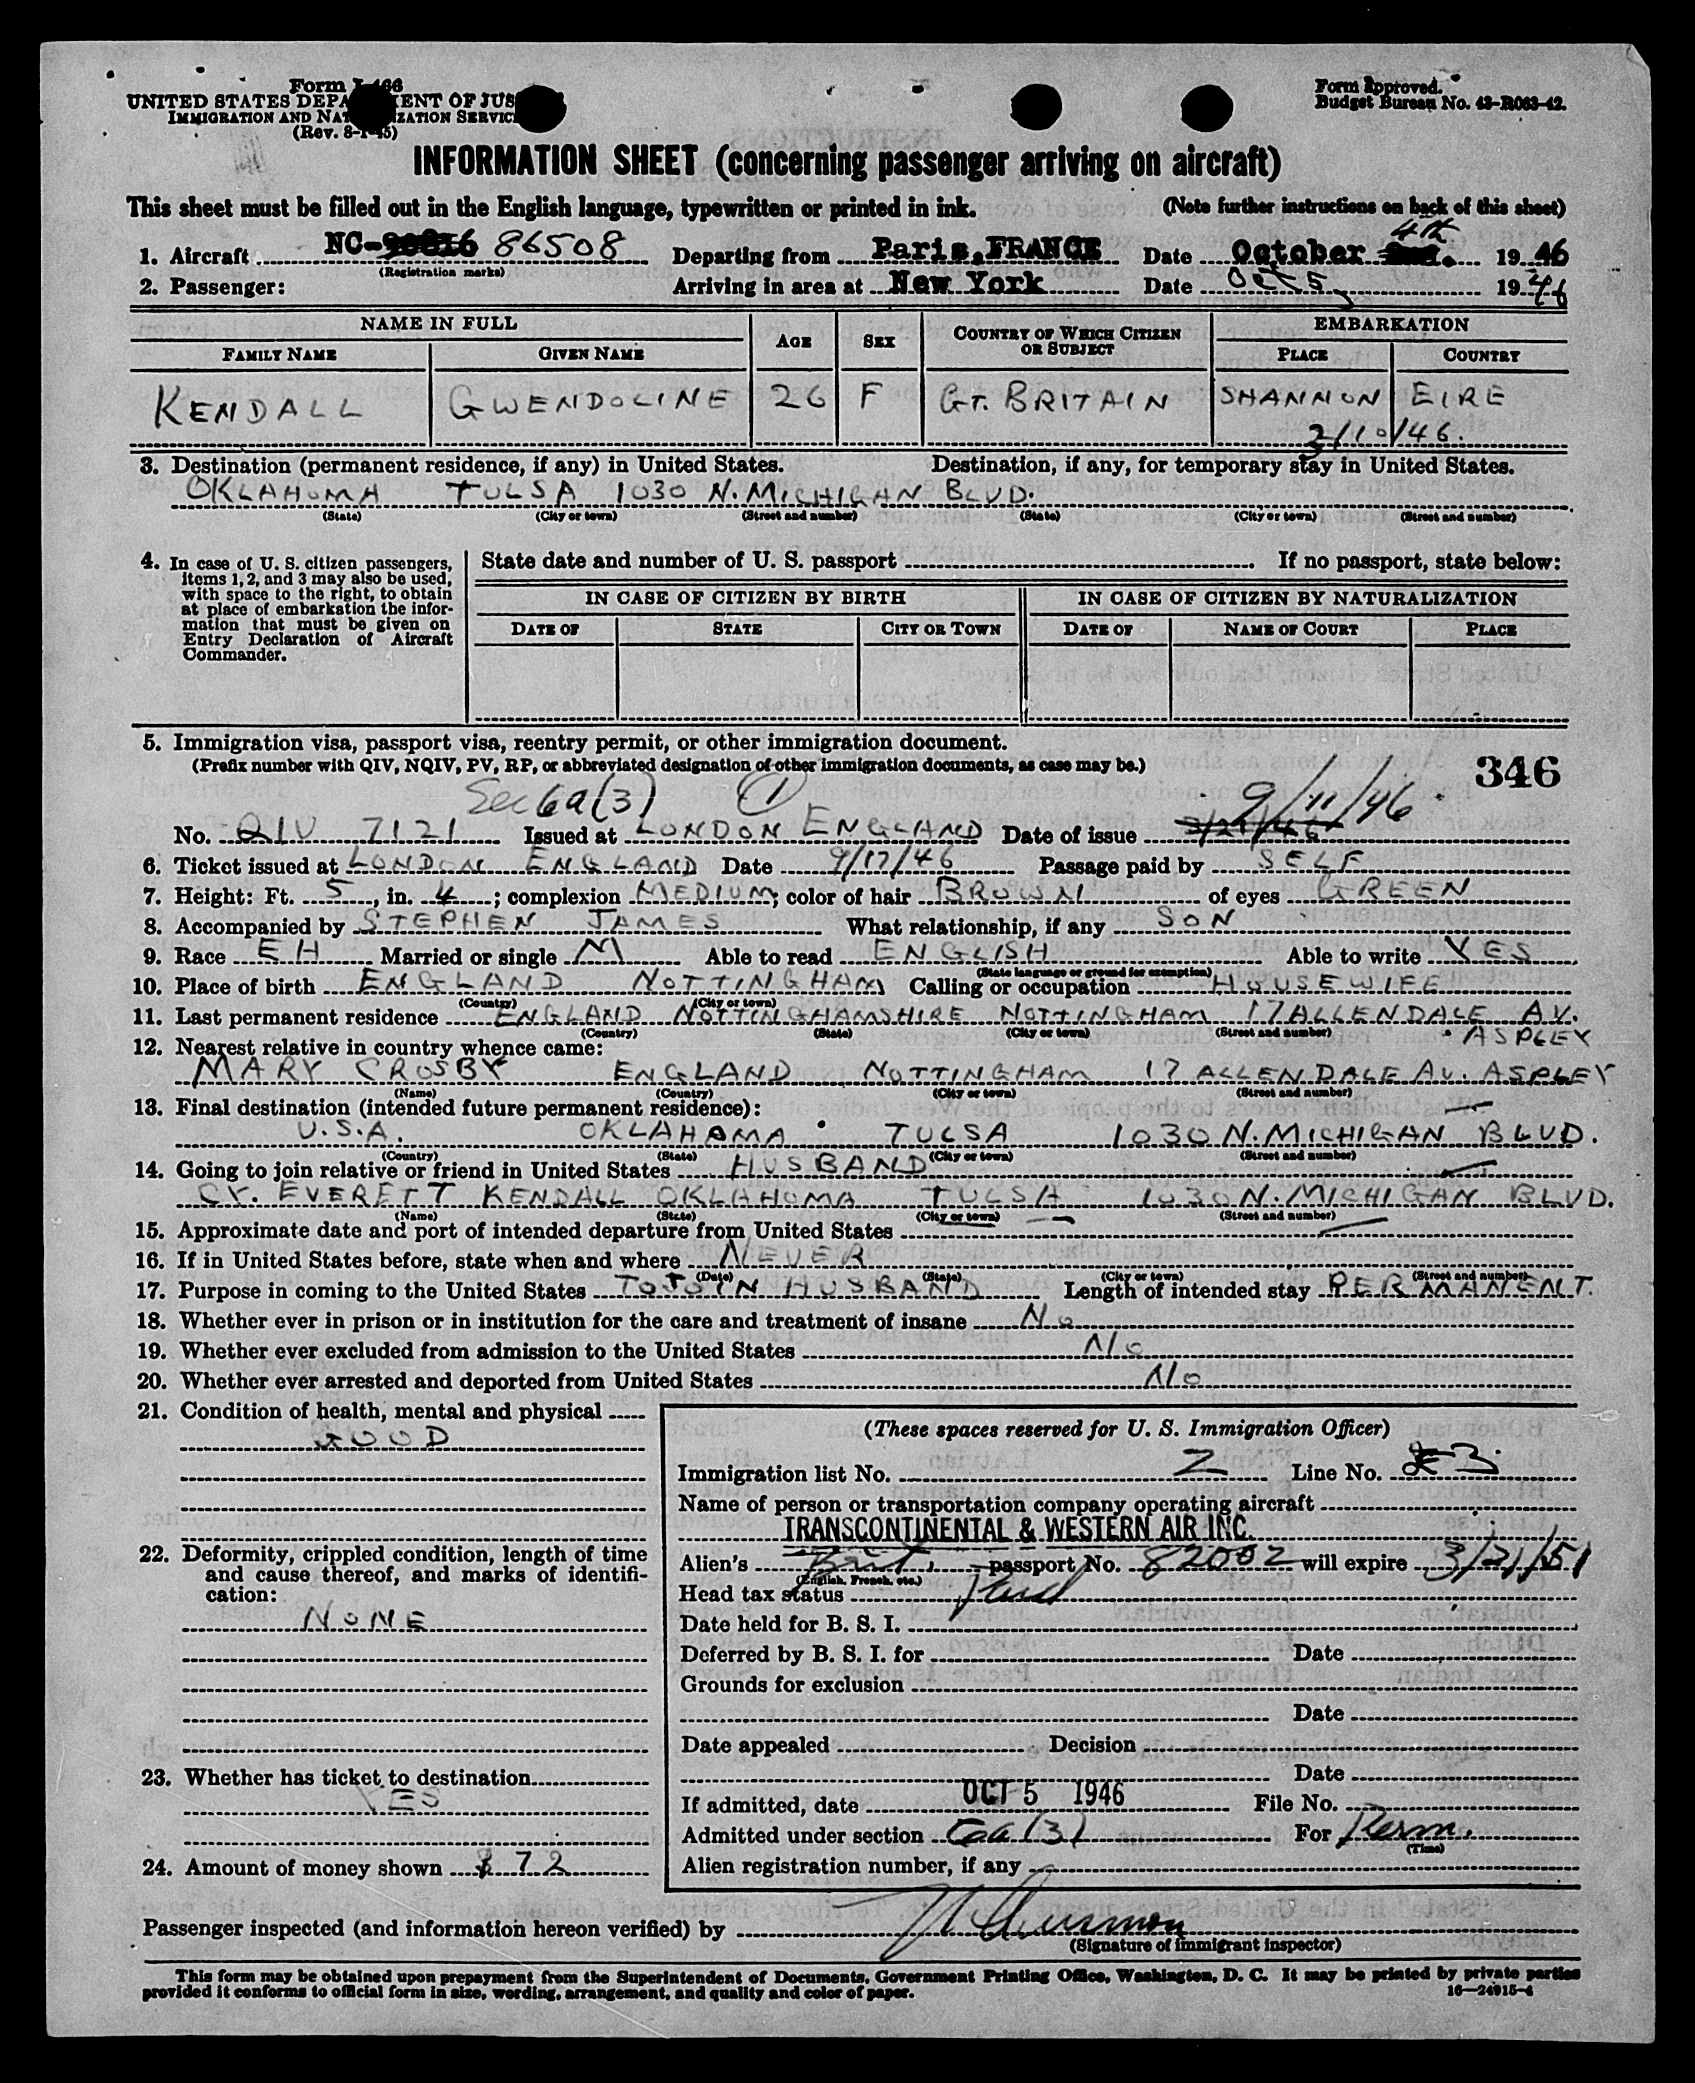 Form I-466
UNITED STATES DEPARTMENT OF JUSTICE
IMMIGRATION AND NATURALIZATION SERVICE
(Rev. 8-1-45)
Form approved.
Budget Bureau No. 43-R063-42.
INFORMATION SHEET (concerning passenger arriving on aircraft)
This sheet must be filled out in the English language, typewritten or printed in ink. (Note further instructions on back of this sheet)
1. Aircraft NC- 86508 Departing from Paris, FRANCE Date October 4th 1946
(Registration marks)
2. Passenger: Arriving in area at New York Date Oct 5, 1946
NAME IN FULL AGE SEX COUNTRY OF WHICH CITIZEN OR SUBJECT EMBARKATION
FAMILY NAME GIVEN NAME PLACE COUNTRY
KENDALL GWENDOLINE 26 F GT. BRITAIN SHANNON EIRE
3/10/46.
3. Destination (permanent residence, if any) in United States. Destination, if any, for temporary stay in United States.
OKLAHOMA TULSA 1030 N. MICHIGAN BLVD.
(State) (City or town) (Street and number) (State) (City or town) (Street and number)
4. In case of U. S. citizen passengers, items 1, 2, and 3 may also be used, with space to the right, to obtain at place of embarkation the information that must be given on Entry Declaration of Aircraft Commander.
State date and number of U. S. passport If no passport, state below:
IN CASE OF CITIZEN BY BIRTH IN CASE OF CITIZEN BY NATURALIZATION
DATE OF STATE CITY OR TOWN DATE OF NAME OF COURT PLACE
5. Immigration visa, passport visa, reentry permit, or other immigration document.
(Prefix number with QIV, NQIV, PV, RP, or abbreviated designation of other immigration documents, as case may be.)
346
Sec 6a(3) 1 9/11/46
No. QIV 7121 Issued at LONDON ENGLAND Date of issue
6. Ticket issued at LONDON ENGLAND Date 9/17/46 Passage paid by SELF
7. Height: Ft. 5, in. 4; complexion MEDIUM; color of hair BROWN of eyes GREEN
8. Accompanied by STEPHEN JAMES What relationship, if any SON
9. Race EH Married or single M Able to read ENGLISH Able to write YES
(State language or ground for exemption)
10. Place of birth ENGLAND NOTTINGHAM Calling or occupation HOUSEWIFE
(Country) (City or town)
11. Last permanent residence ENGLAND NOTTINGHAMSHIRE NOTTINGHAM 17 ALLENDALE AV. ASPLEY
(Country) (State) (City or town) (Street and number)
12. Nearest relative in country whence came:
MARY CROSBY ENGLAND NOTTINGHAM 17 ALLENDALE AV. ASPLEY
(Name) (Country) (City or town) (Street and number)
13. Final destination (intended future permanent residence):
U.S.A. OKLAHOMA TULSA 1030 N. MICHIGAN BLVD.
(Country) (State) (City or town) (Street and number)
14. Going to join relative or friend in United States HUSBAND
CY. EVERETT KENDALL OKLAHOMA TULSA 1030 N. MICHIGAN BLVD.
(Name) (State) (City or town) (Street and number)
15. Approximate date and port of intended departure from United States
16. If in United States before, state when and where NEVER
(Date) (State) (City or town) (Street and number)
17. Purpose in coming to the United States TO JOIN HUSBAND Length of intended stay PERMANENT.
18. Whether ever in prison or in institution for the care and treatment of insane No
19. Whether ever excluded from admission to the United States No
20. Whether ever arrested and deported from United States No
21. Condition of health, mental and physical
GOOD
22. Deformity, crippled condition, length of time and cause thereof, and marks of identification:
NONE
23. Whether has ticket to destination
YES
24. Amount of money shown $72
(These spaces reserved for U. S. Immigration Officer)
Immigration list No. 2 Line No. 3
Name of person or transportation company operating aircraft
TRANSCONTINENTAL & WESTERN AIR INC.
Alien's Brit. passport No. 82002 will expire 3/21/51
(English, French, etc.)
Head tax status Paid
Date held for B. S. I.
Deferred by B. S. I. for Date
Grounds for exclusion
Date
Date appealed Decision
Date
If admitted, date OCT 5 1946 File No.
Admitted under section 6a(3) For Perm.
(Time)
Alien registration number, if any
Passenger inspected (and information hereon verified) by
(Signature of immigrant inspector)
This form may be obtained upon prepayment from the Superintendent of Documents, Government Printing Office, Washington, D. C. It may be printed by private parties
provided it conforms to official form in size, wording, arrangement, and quality and color of paper. 16—24915-4